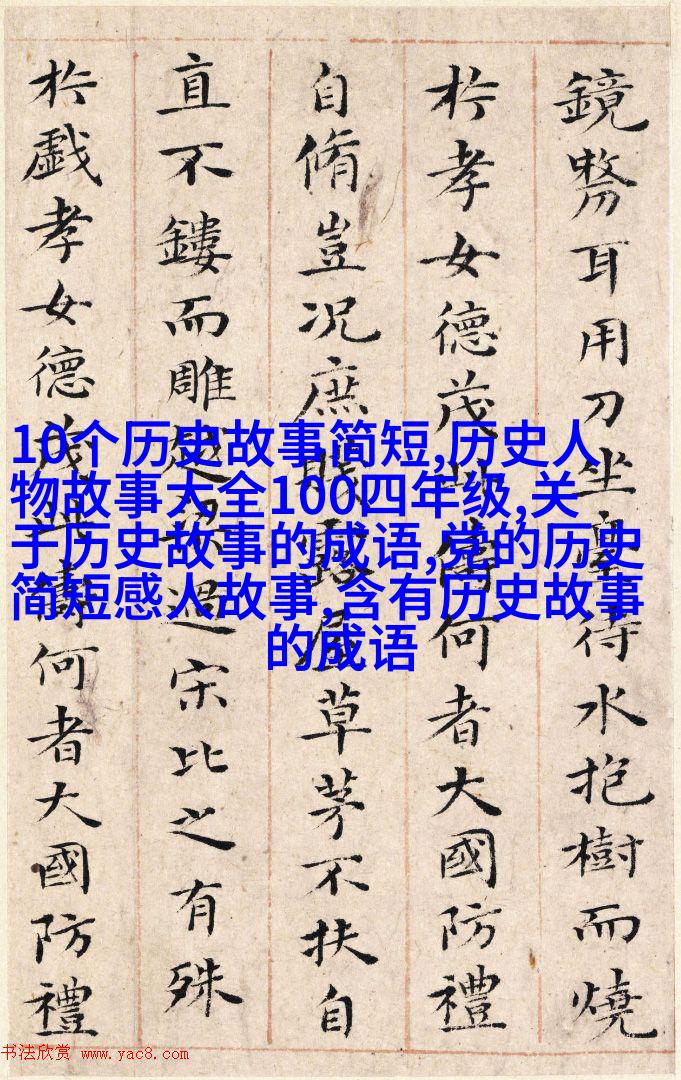 鏡剺耳用刀坐臺待水抱樹而燒
於孝女德茂此儔何者大國防禮
自脩豈况庶賤露屋草茅不扶自
直不鏤而雕越梁過宋比之有殊
於戲孝女德茂此儔何者大國防禮
10个历史故事简短,历史人
物故事大全100四年级,关
于历史故事的成语,党的历史
简短感人故事,含有历史故事
的成语
书法欣赏 www.yac8.com